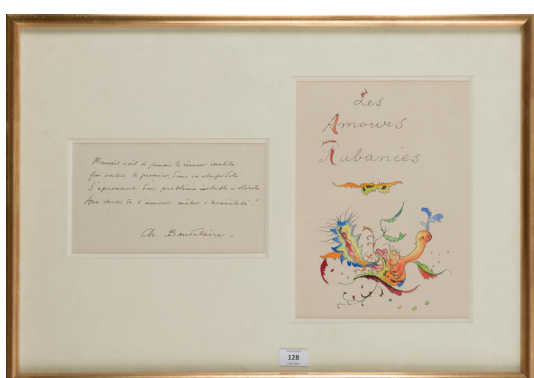 Maudit soit à jamais le rêveur inutile
Qui voulut le premier, dans sa stupidité
S'éprenant d'un problème insoluble et stérile
Aux choses de l'amour mêler l'honnêteté!
Ch. Baudelaire
Les
Amours
Rubanées
128